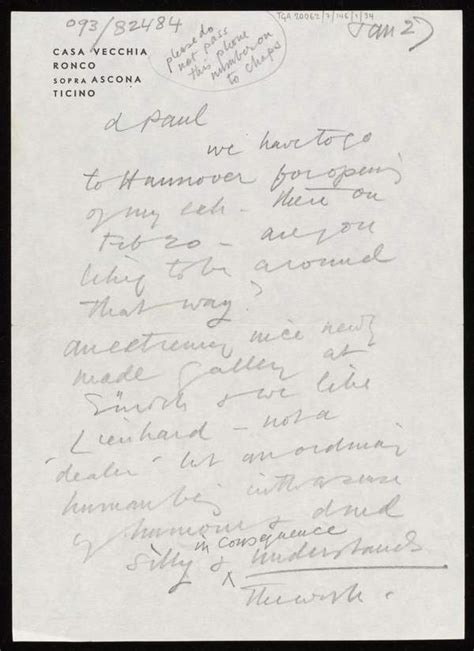 093/82484
TGA 20062/3/146/1/34
Jan 27
please do
not pass
this phone
number on
to chaps
CASA VECCHIA
RONCO
SOPRA ASCONA
TICINO
d Paul
we have to go
to Hannover for opening
of my exh. there on
Feb 20 - are you
likely to be around
that way?
an extremely nice newly
made gallery at
Zürich & we like
Lienhard - not a
"dealer" but an ordinary
human being with a sense
of humour &
silly & in consequence understands
the work.